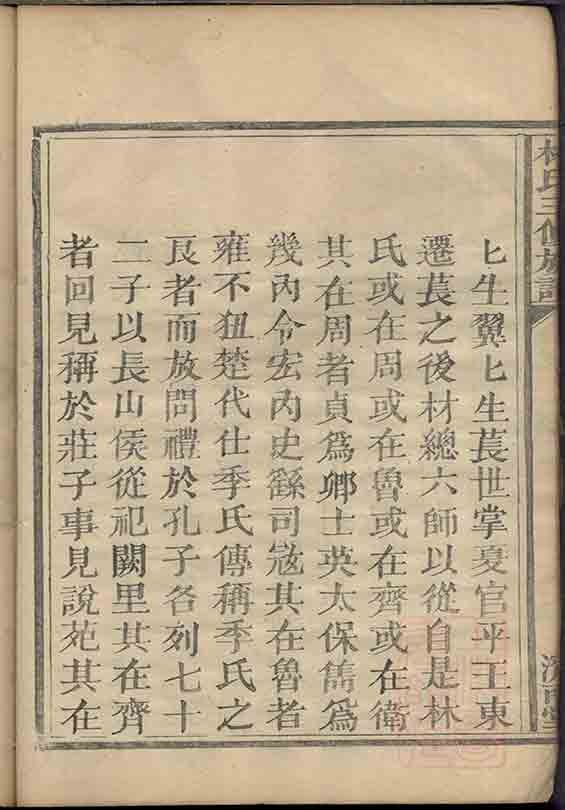 林氏三修族譜
匕生翼匕生萇世掌夏官平王東
遷萇之後材總六師以從自是林
氏或在周或在魯或在齊或在衛
其在周者貞爲卿士英太保雋爲
幾內令宏內史繇司宼其在魯者
雍不狃楚代仕季氏傳稱季氏之
良者而放問禮於孔子各列七十
二子以長山侯從祀闕里其在齊
者回見稱於莊子事見說苑其在